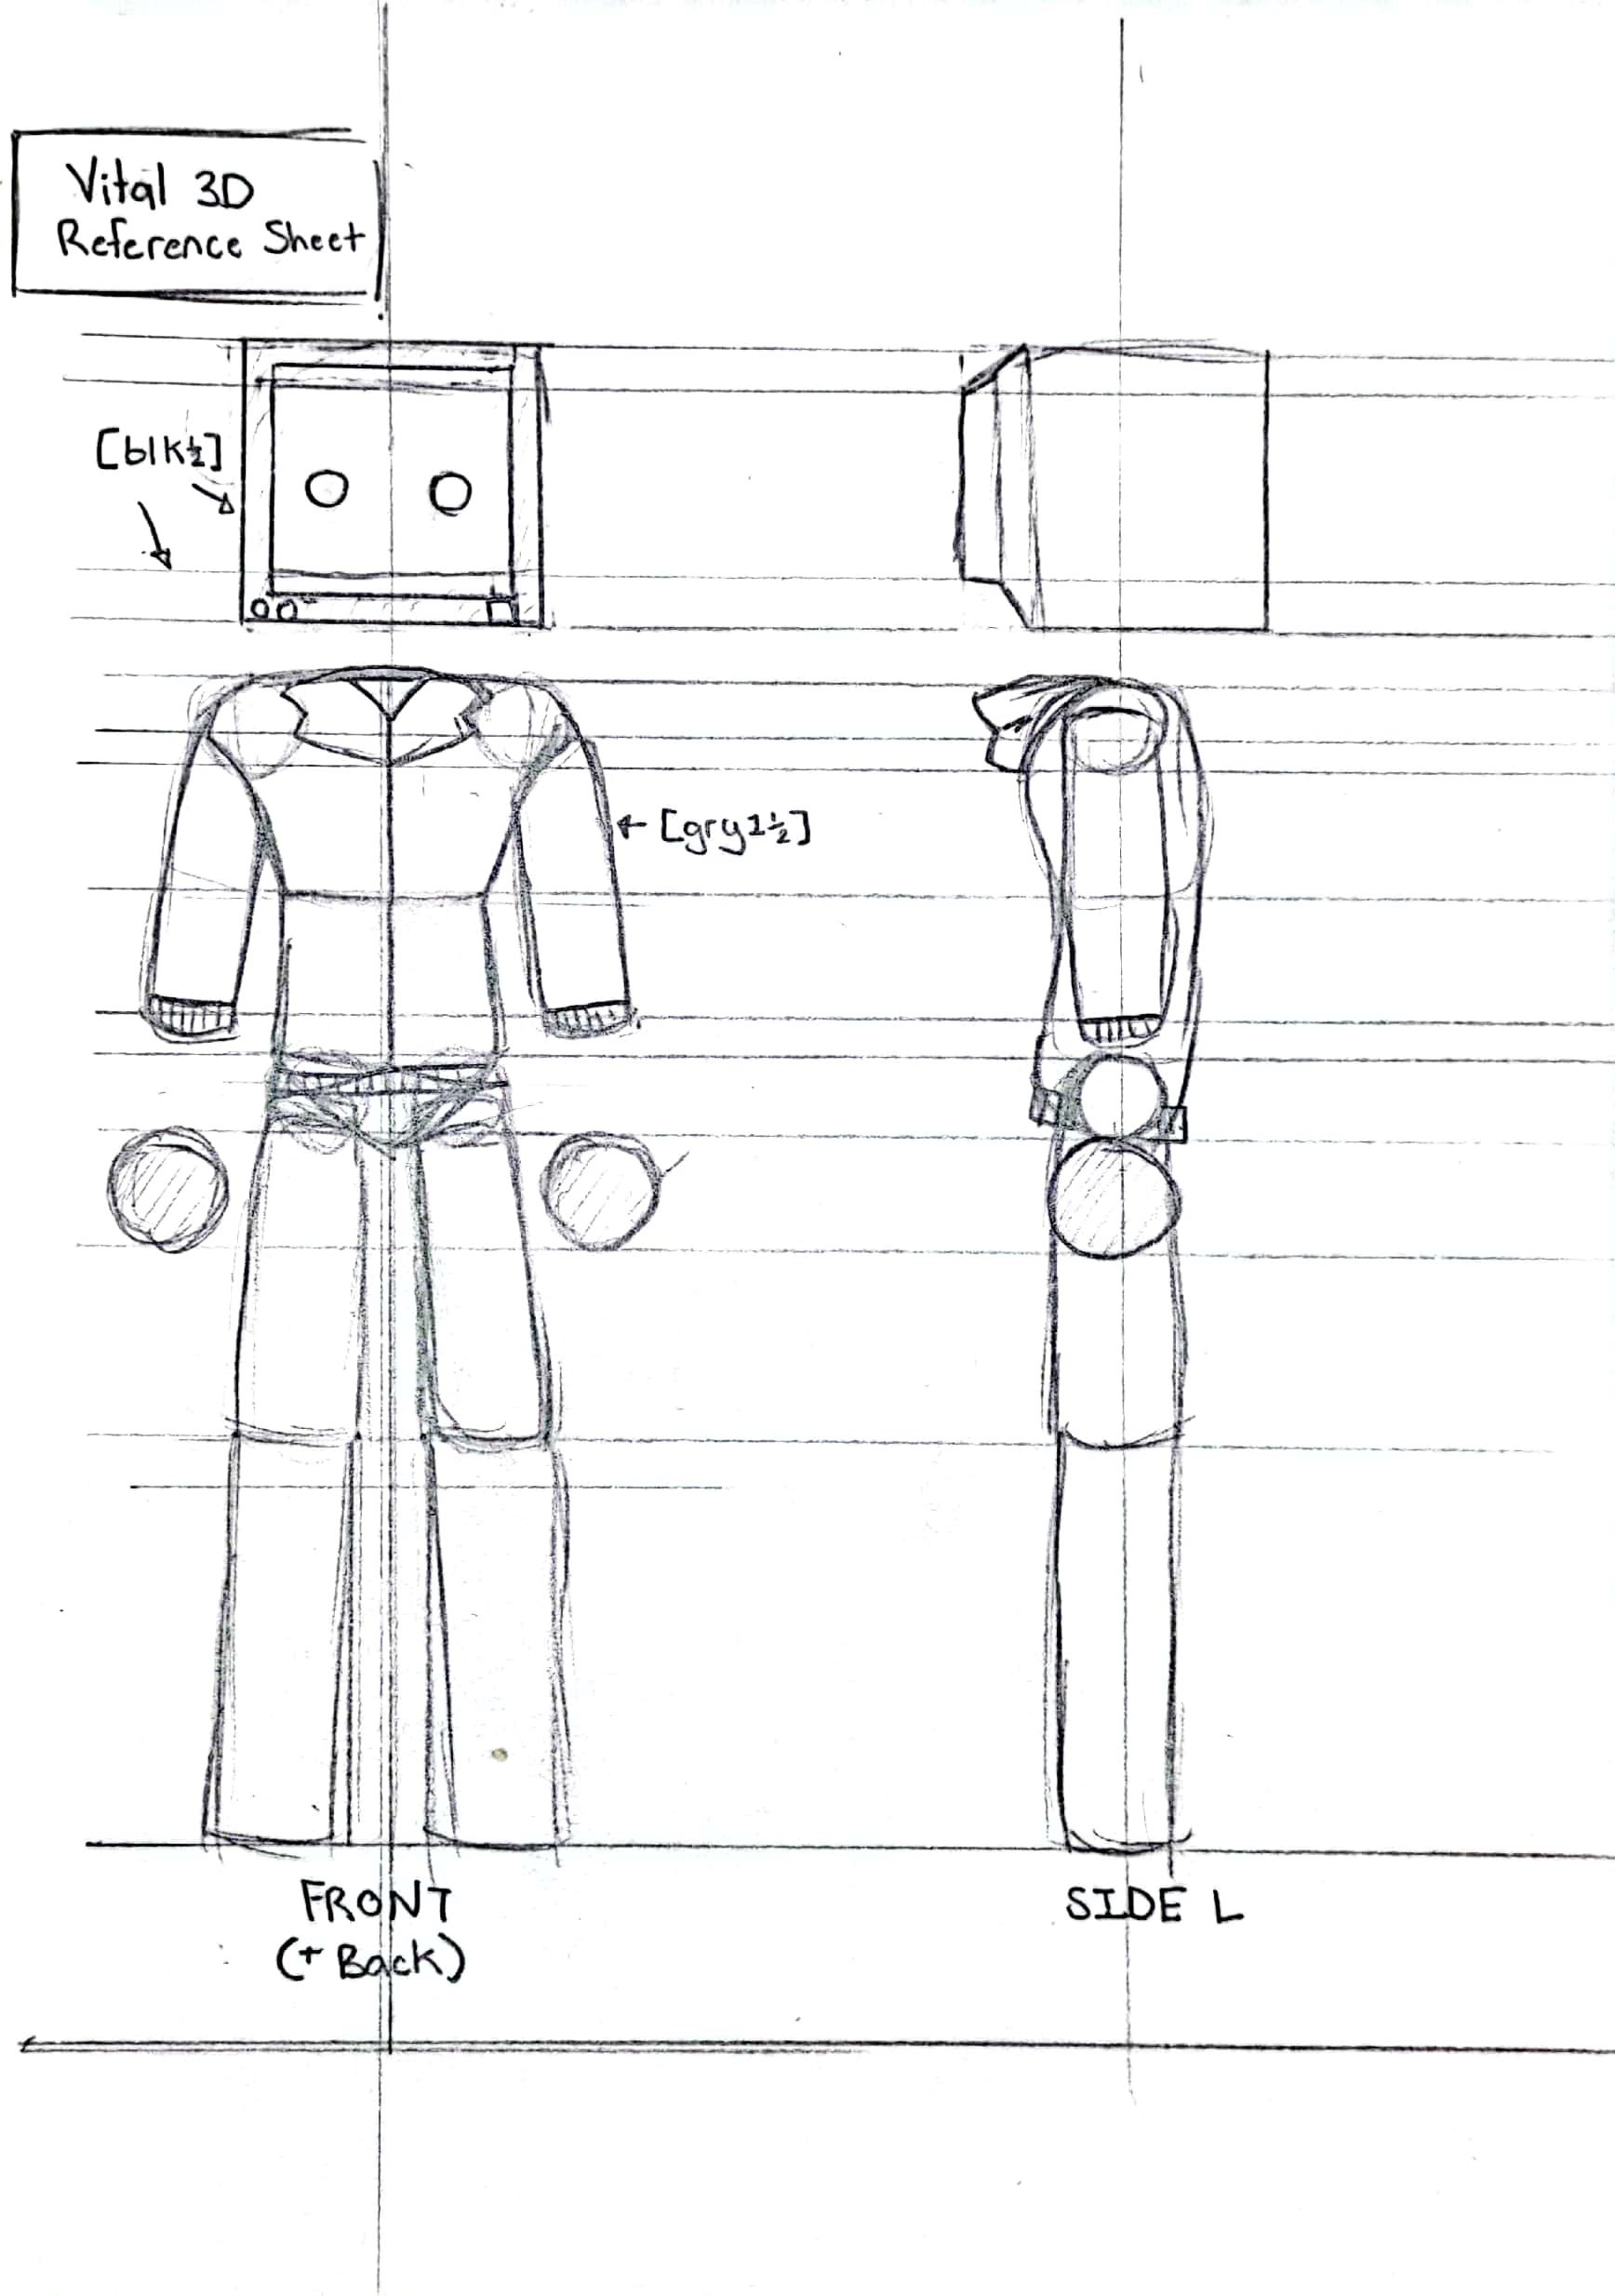 Vital 3D
Reference Sheet
[blk½]
← [gry1½]
FRONT
(+ Back)
SIDE L